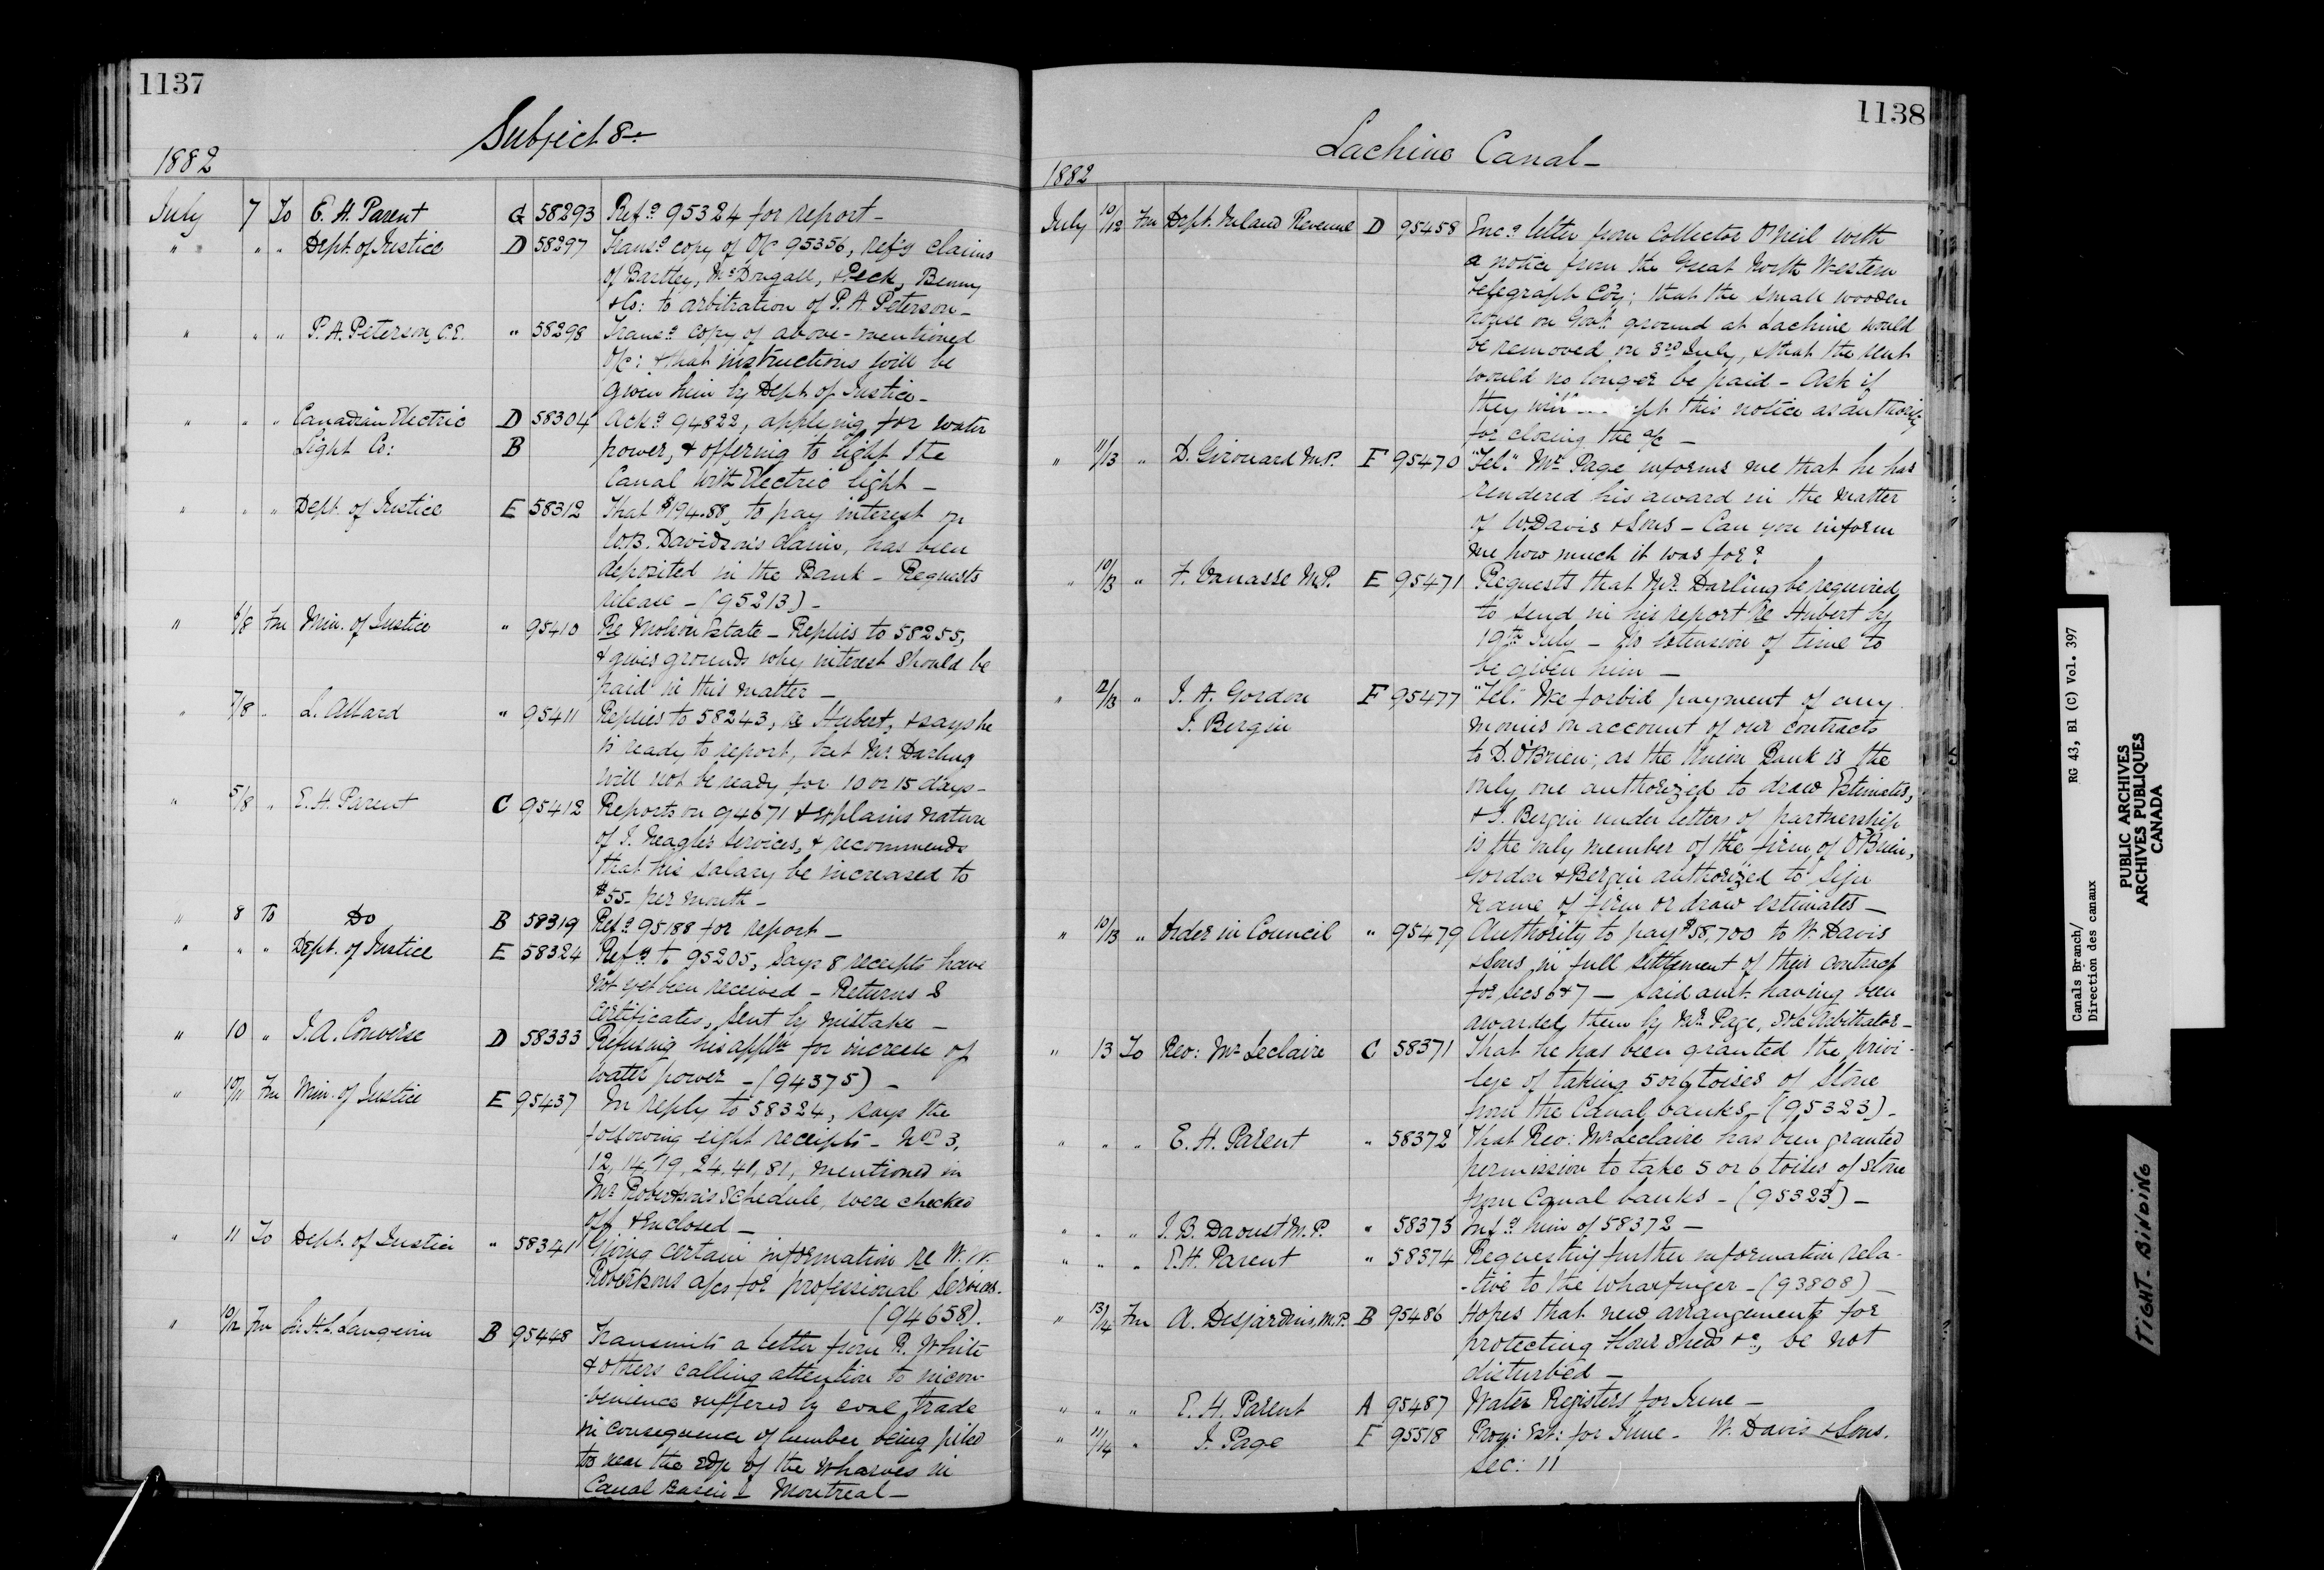 1137
Subject 8.
1882
July 7 To E. H. Parent G 58293 Refd 95324 for report -
" " " Dept. of Justice D 58297 Transd copy of O/C 95356, refg claims
of Bartley, McDougall, & Peck, Benny
& Co: to arbitration of P. A. Peterson -
" " " P. A. Peterson, C.E. " 58298 Transd copy of above-mentioned
O/C: & that instructions will be
given him by Dept. of Justice -
" " " Canadian Electric D 58304 Ackd 94822, applying for water
Light Co: B power, & offering to light the
Canal with Electric light -
" " " Dept. of Justice E 58312 That $194.88, to pay interest on
W.B. Davidson's claim, has been
deposited in the Bank - Requests
release - (95213) -
" 6/8 Fm Min. of Justice " 95410 Re Molson Estate - Replies to 58255,
& gives grounds why interest should be
paid in this matter -
" 7/8 " L. Allard " 95411 Replies to 58243, re Hubert, & says he
is ready to report, but Mr. Darling
will not be ready for 10 or 15 days -
" 5/8 " E. H. Parent C 95412 Reports on 94671 & explains nature
of J. Meagher services, & recommends
that his salary be increased to
$55 - per month -
" 8 To Do B 58319 Refd 95188 for report -
" " " Dept. of Justice E 58324 Refg to 95205, Says 8 receipts have
not yet been received - Returns 8
certificates, sent by mistake -
" 10 " J. A. Converse D 58333 Refusing his appln for increase of
water power - (94375) -
" 10/11 Fm Min. of Justice E 95437 In reply to 58324, says the
following eight receipts - Nos 3,
12, 14, 19, 24, 41, 81, mentioned in
Mr Robertson's schedule, were checked
off & Enclosed -
" 11 To Dept. of Justice " 58341 Giving certain information re W. W.
Robertsons a/cs for professional services.
(94658).
" 10/12 Fm Sir H. L. Langevin B 95448 Transmits a letter from R. White
& others calling attention to incon-
-venience suffered by coal trade
in consequence of lumber being piled
too near the edge of the wharves in
Canal Basin Montreal -
1138
Lachine Canal -
1882
July 10/12 Fm Dept. Inland Revenue D 95458 Encg letter from Collector O'Neil with
a notice from the Great North Western
Telegraph Coy; that the small wooden
house on Govt. ground at Lachine would
be removed on 3rd July, & that the rent
would no longer be paid - Ask if
they will this notice as authority
for closing the a/c -
" 11/13 " D. Girouard M.P. F 95470 "Tel." Mr. Page informs me that he has
rendered his award in the matter
of W. Davis & Sons - Can you inform
me how much it was for?
" 10/13 " F. Vanasse M.P. E 95471 Requests that Mr. Darling be required
to send in his report Re Hubert by
19th July - No extension of time to
be given him -
" 12/13 " J. A. Gordon F 95477 "Tel." We forbid payment of any
J. Bergin monies on account of our contracts
to D. O'Brien; as the Union Bank is the
only one authorized to draw Estimates,
& J. Bergin under letters of partnership
is the only member of the firm of O'Brien,
Gordon & Bergin authorized to sign
name of firm or draw estimates -
" 10/13 " Order in Council " 95479 Authority to pay $58,700 to W. Davis
& Sons in full settlement of their contract
for secs 6 & 7 - said amt. having been
awarded them by Mr. Page, Sole Arbitrator -
" 13 To Rev: Mr Leclaire C 58371 That he has been granted the privi-
lege of taking 5 or 6 toises of stone
from the Canal banks - (95323) -
" " " E. H. Parent " 58372 That Rev: Mr Leclaire has been granted
permission to take 5 or 6 toises of stone
from Canal banks - (95323) -
" " " J. B. Daoust M.P. " 58373 Infg him of 58372 -
" " " E. H. Parent " 58374 Requesting further information rela-
-tive to the wharfinger - (93808) -
" 13/14 Fm A. Desjardins, M.P. B 95486 Hopes that new arrangements for
protecting Flour sheds &c, be not
disturbed -
" " " E. H. Parent A 95487 Water Registers for June -
" 11/14 " J. Page F 95518 Prog: Est: for June - W. Davis & Sons.
Sec: 11
Canals Branch/ RG 43, B1 (C) Vol. 397
Direction des canaux
PUBLIC ARCHIVES
ARCHIVES PUBLIQUES
CANADA
TIGHT-BINDING